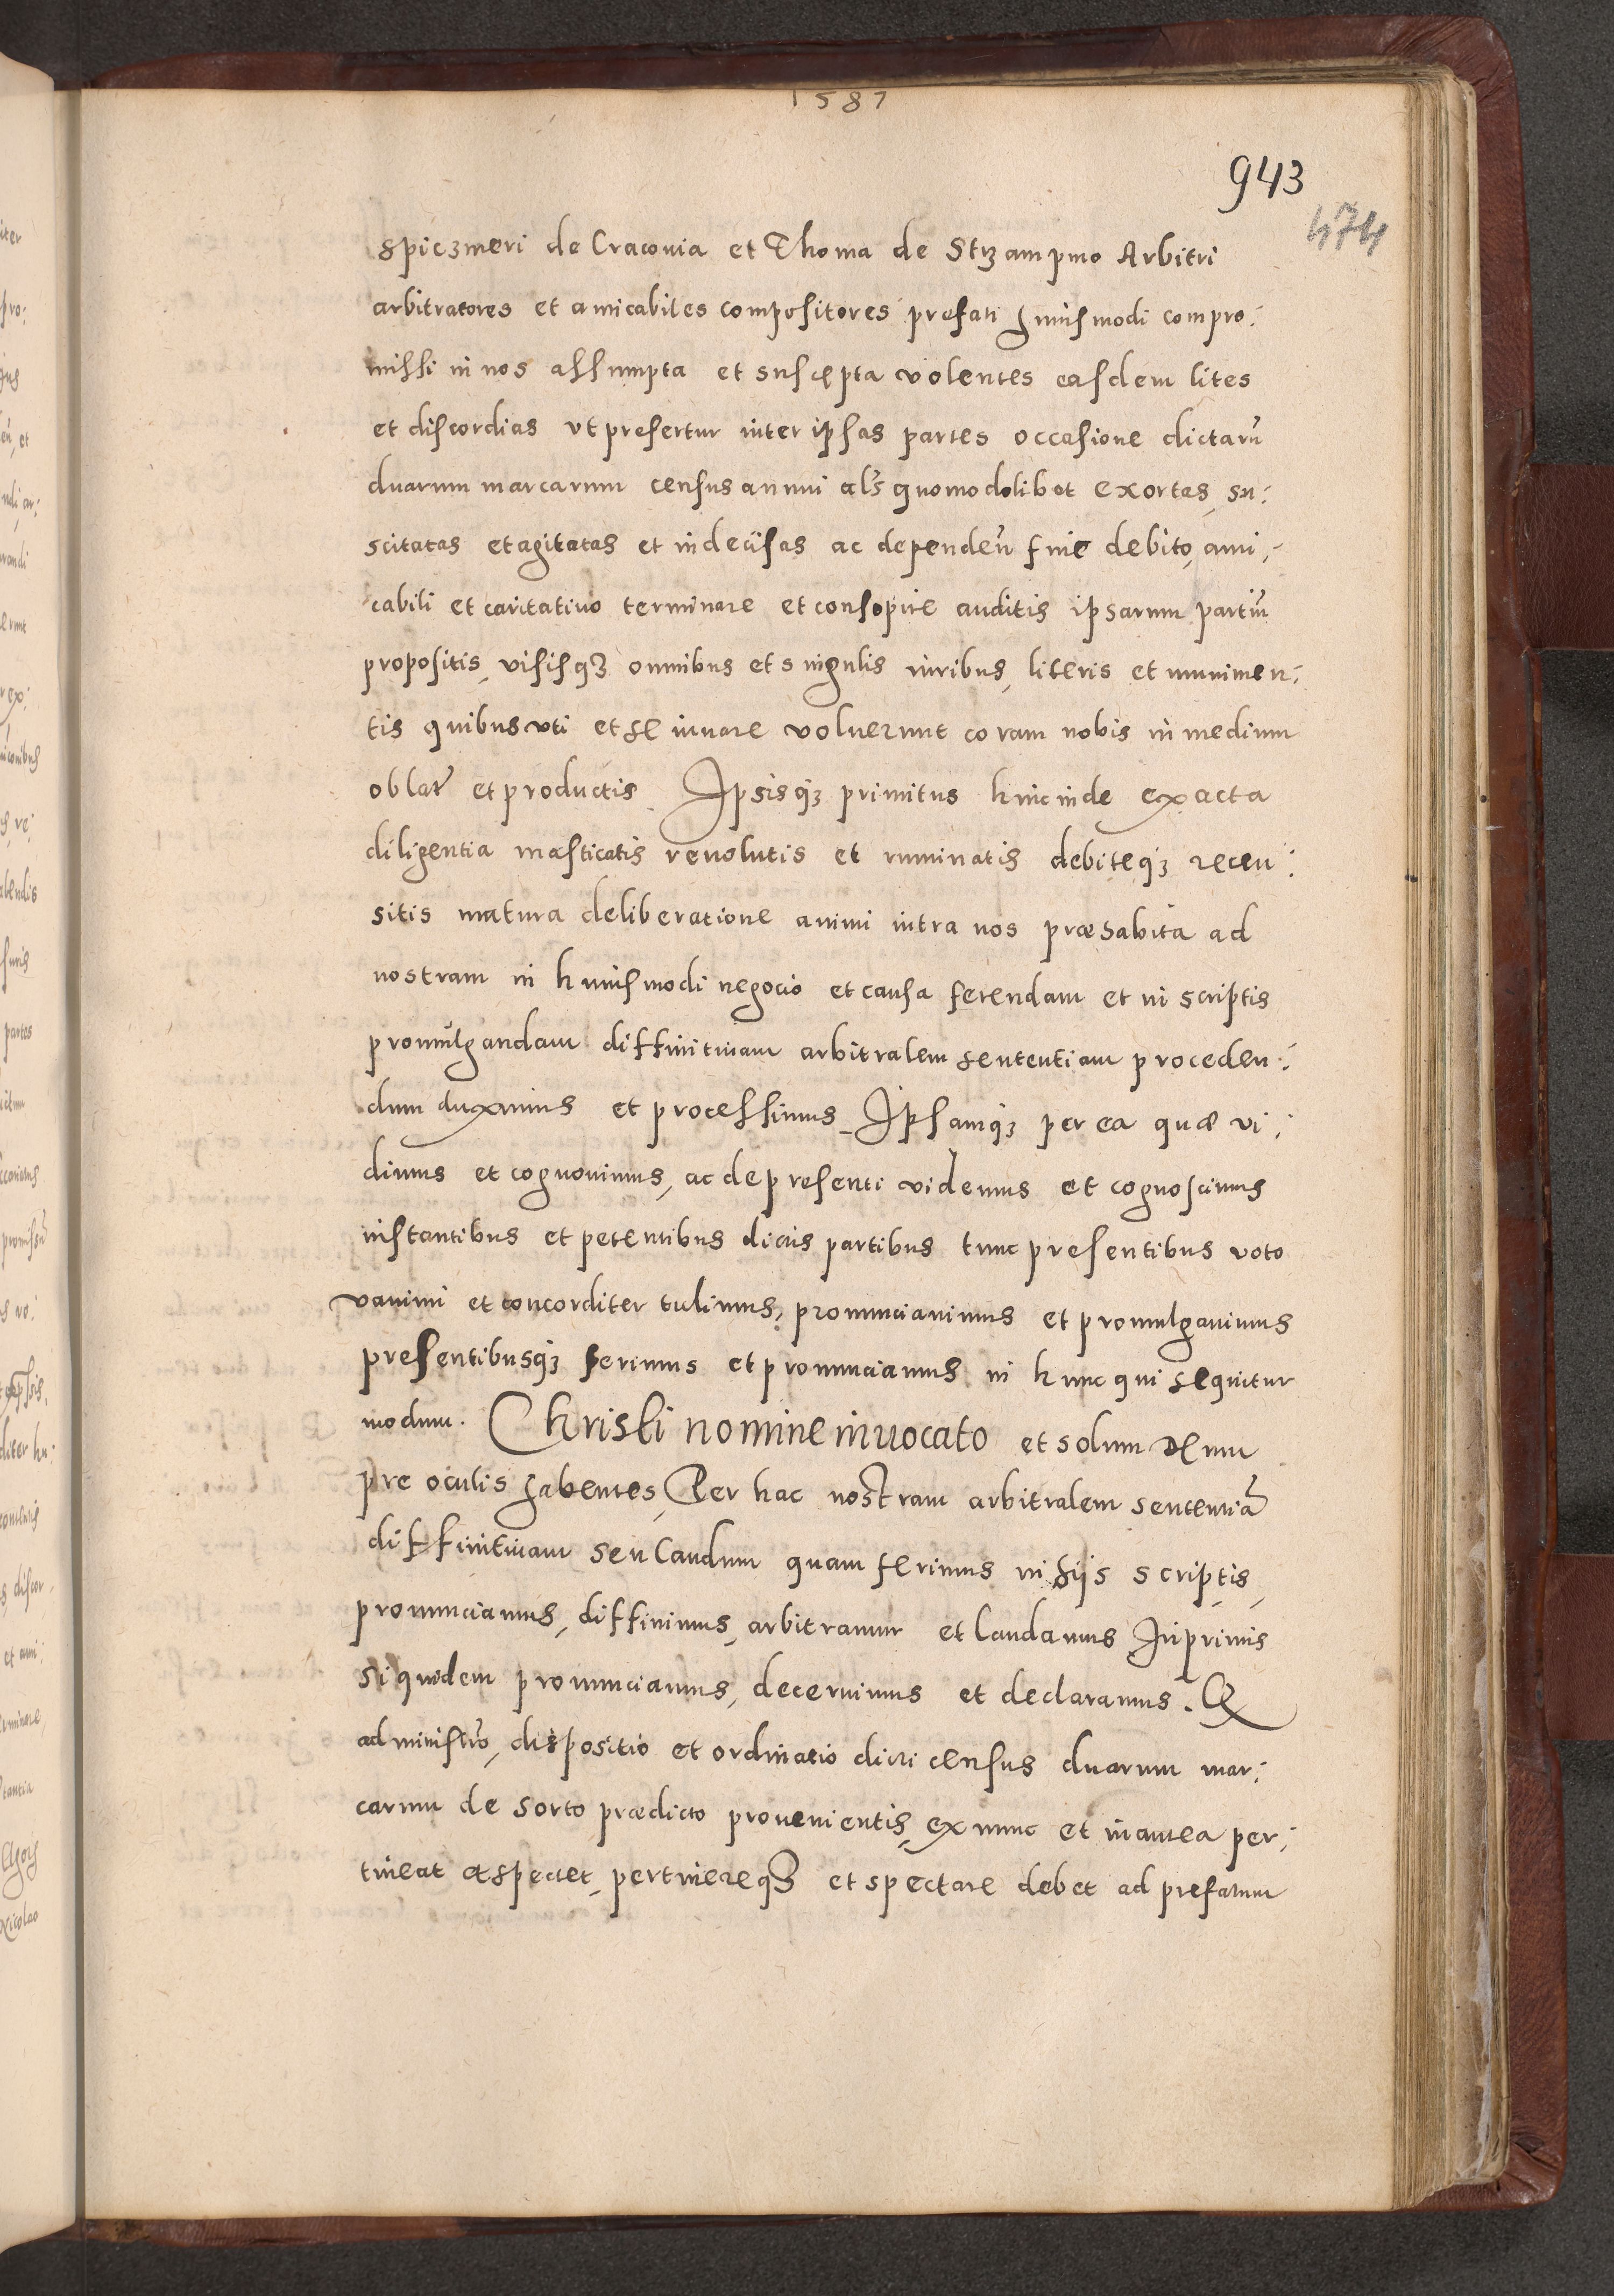 1587
943
474
Spiczmeri de Cracouia et Thoma de Strzampino Arbitri
arbitratores et amicabiles compositores prefati huiusmodi compro:
missi in nos assumpta et suscepta volentes easdem lites
et discordias vt prefertur inter ipsas partes occasione dictarū
duarum marcarum census annui als quomodolibet exortas, su:
scitatas et agitatas et indecisas ac dependeñ fine debito, ami:
cabili et caritatiuo terminare et consopire auditis ipsarum partiū
propositis, visisqꝫ omnibus et singulis iuribus, literis et munimen:
tis quibus vti et se iuuare voluerunt coram nobis in medium
oblat̃ et productis. Ipsisqꝫ primitus hincinde exacta
diligentia masticatis reuolutis et ruminatis debiteqꝫ recen:
sitis matura deliberatione animi intra nos præhabita ad
nostram in huiusmodi negocio et causa ferendam et in scriptis
promulgandam diffinitiuam arbitralem sententiam proceden:
dum duximus et processimus. Ipsamqꝫ per ea quæ vi:
dimus et cognouimus, ac de presenti videmus et cognoscimus
instantibus et petentibus dictis partibus tunc presentibus voto
vanimi et concorditer tulimus, pronunciauimus et promulgauimus
presentibusqꝫ ferimus et pronunciamus in hunc qui sequitur
modum. Christi nomine inuocato et solum Deum
pre oculis habentes, Per hac nostram arbitralem sententiã
diffinitiuam seu laudum quam ferimus in hijs scriptis,
pronunciamus, diffinimus, arbitramur et laudamus Inprimis
siquidem pronunciamus, decernimus et declaramus. Q
administr̃o, dispositio et ordinatio dicti census duarum mar:
carum de sorto prædicto prouenientis, ex nunc et inantea per:
tineat et spectet, pertinereqꝫ et spectare debet ad prefatum